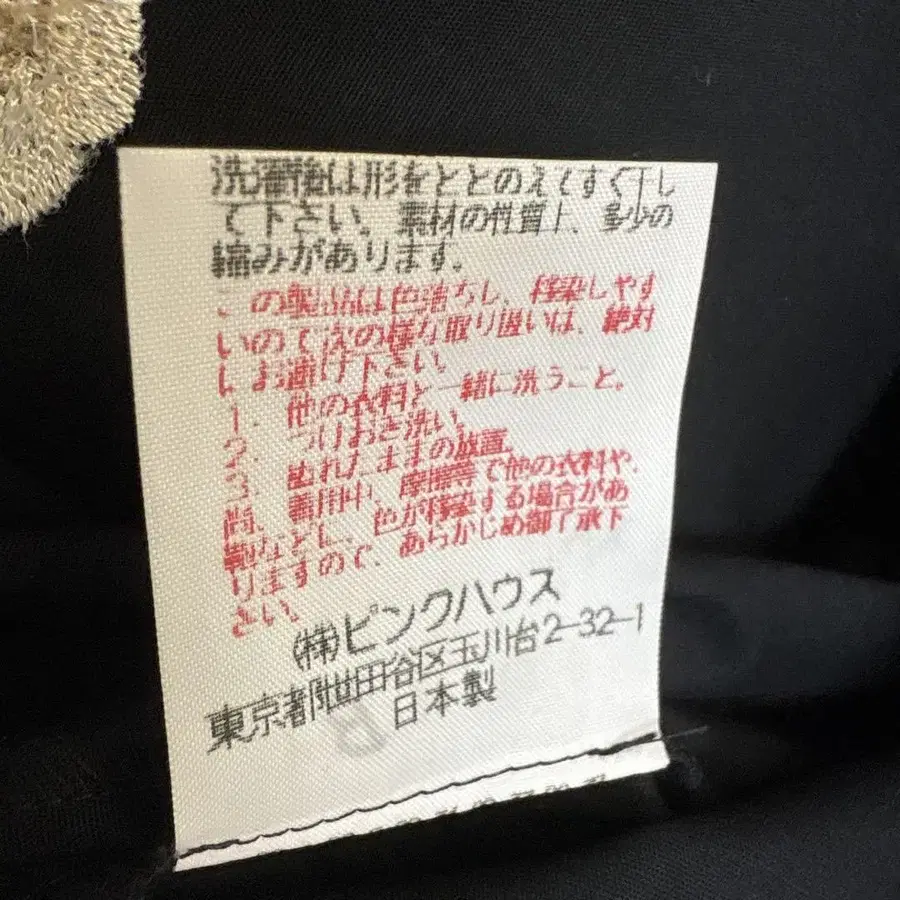 洗濯後は形をととのえてすぐ干し
て下さい。素材の性質上、多少の
縮みがあります。
この製品は色落ちし、移染しやす
いので次の様な取り扱いは、絶対
にお避け下さい。
1. 他の衣料と一緒に洗うこと。
2. つけおき洗い。
3. ぬれたままの放置。
尚、着用中、摩擦等で他の衣料や、
靴などに、色が移染する場合があ
りますので、あらかじめ御了承下
さい。
(株)ピンクハウス
東京都世田谷区玉川台2-32-1
日本製